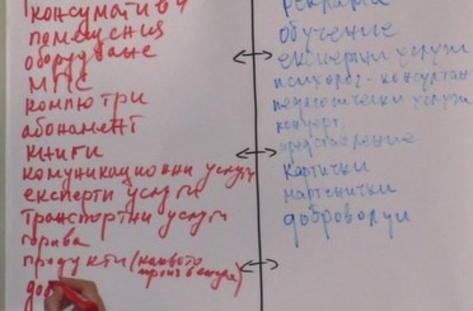 консумативи
помещения
оборудване
МПС
компютри
абонамент
книги
комуникационни услуги
експертни услуги
транспортни услуги
горива
продукти (каквото
произвежда)
до
реклама
обучение
експертни услуги
психолог-консултан
педагогически услуги
концерт,
представление
картички
мартенички
доброволци